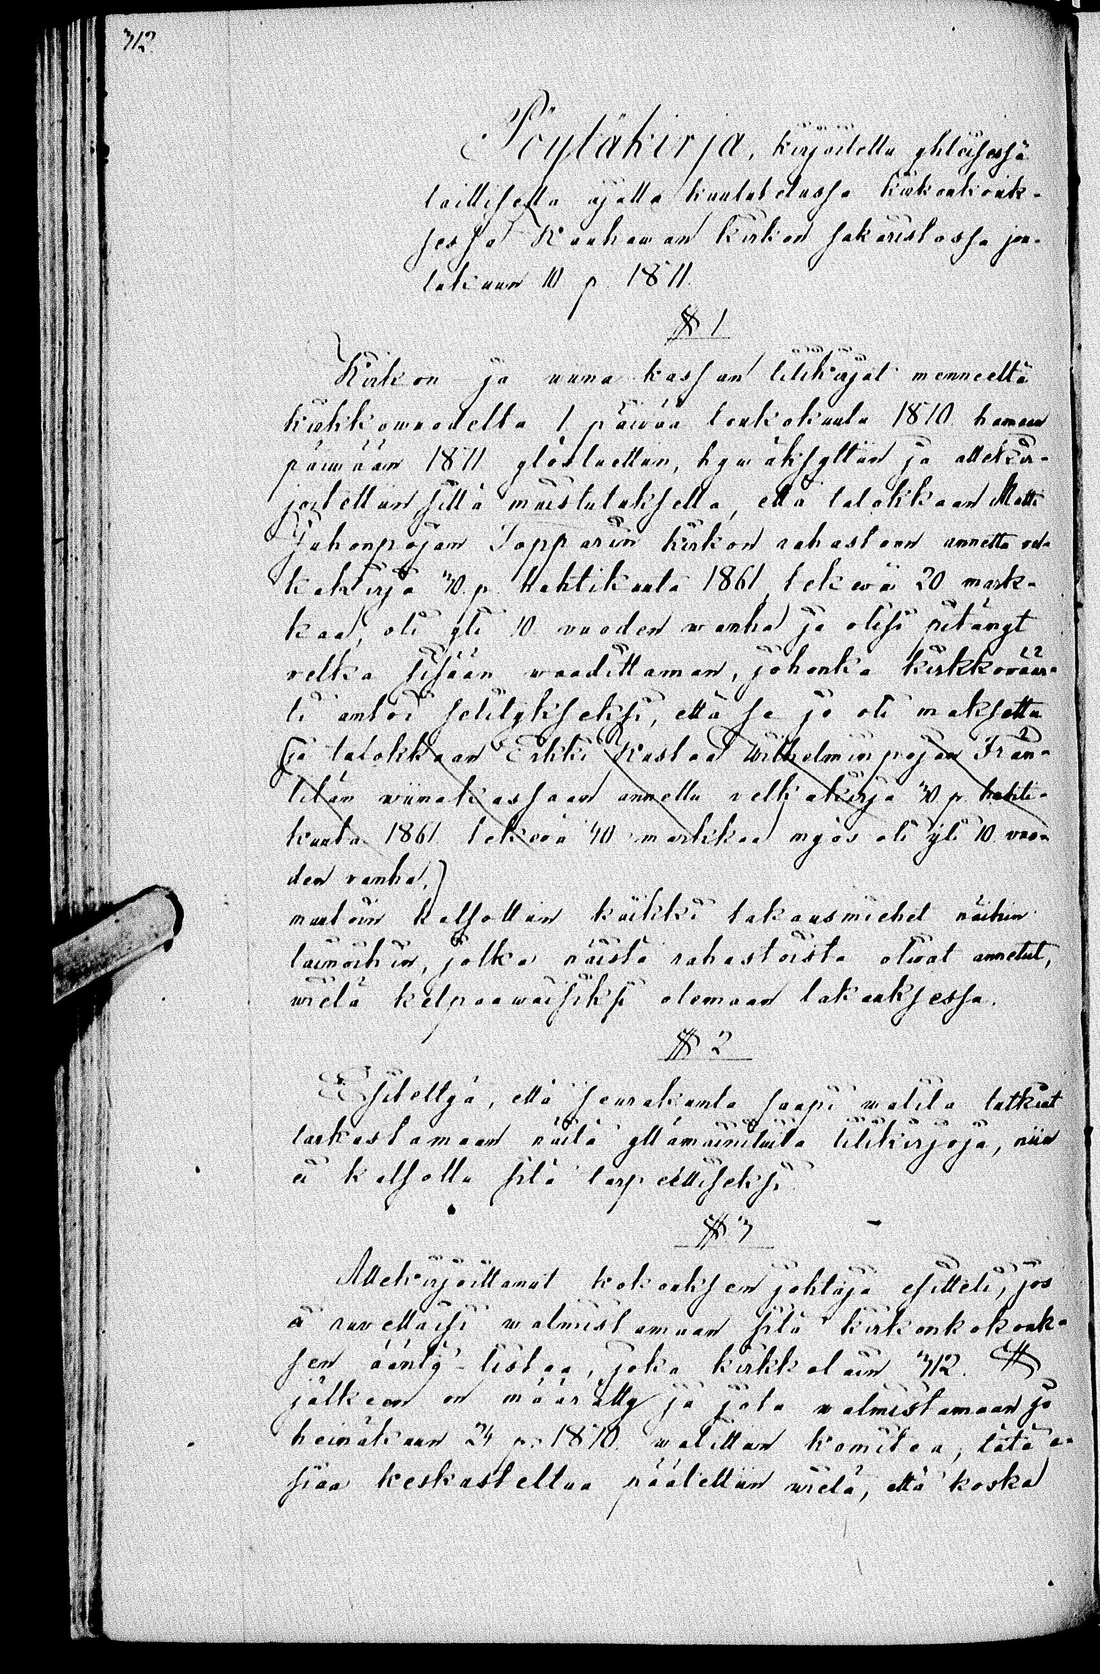 312
Pöytäkirja, kirjoitettu yhteisessä
laillisella ajalla kuulutetussa kirkonkouk-
sessa Kauhawan kirkon sakaristossa jou-
lukuun 10 p. 1871.
§ 1
Kirkon- ja wiina-kassan tilikirjat menneeltä
kirkkowuodelta 1 päiwää toukokuuta 1870 hamaan
päiwään 1871 ylösluettiin, hywäksyttiin ja allekir-
joitettiin sillä muistutuksella, että talokkaan Matti
Juhonpojan Topparin kirkon rahastoon annettu vel-
kakirja 30. p. huhtikuuta 1861, tekewä 20 mark-
kaa, oli yli 10 vuoden wanha ja olisi pitänyt
velka sisään waadittaman, johonka kirkkoväär-
ti antoi selitykseksi, että se jo oli maksettu
(ja talokkaan Erkki Kustaa Wilhelmin pojan Frän-
tilän wiinakassaan annettu velkakirja 30 p. huhti-
kuuta 1861 tekevä 40 markkaa myös oli yli 10 vuo-
den vanha.)
muutoin katsottiin kaikki takausmiehet näihin
lainoihin, jotka näistä rahastoista oliwat annetut,
wielä kelpaawaisiksi olemaan takauksessa.
§ 2
Esiteltyä, että seurakunta saapi walita tutkiat
tarkastamaan näitä yllämainituita tilikirjoja, niin
ei katsottu sitä tarpeelliseksi.
§ 3
Allekirjoittanut kokouksen johtaja esitteli, jos
ei ruvettaisi walmistamaan sitä kirkonkokouk-
sen ääntö-listaa, joka kirkkolain 312. §
jälkeen on määrätty ja jota walmistamaan jo
heinäkuun 24 p. 1870 walittiin komitea, tätä a-
siaa keskusteltua päätettiin wielä, että koska